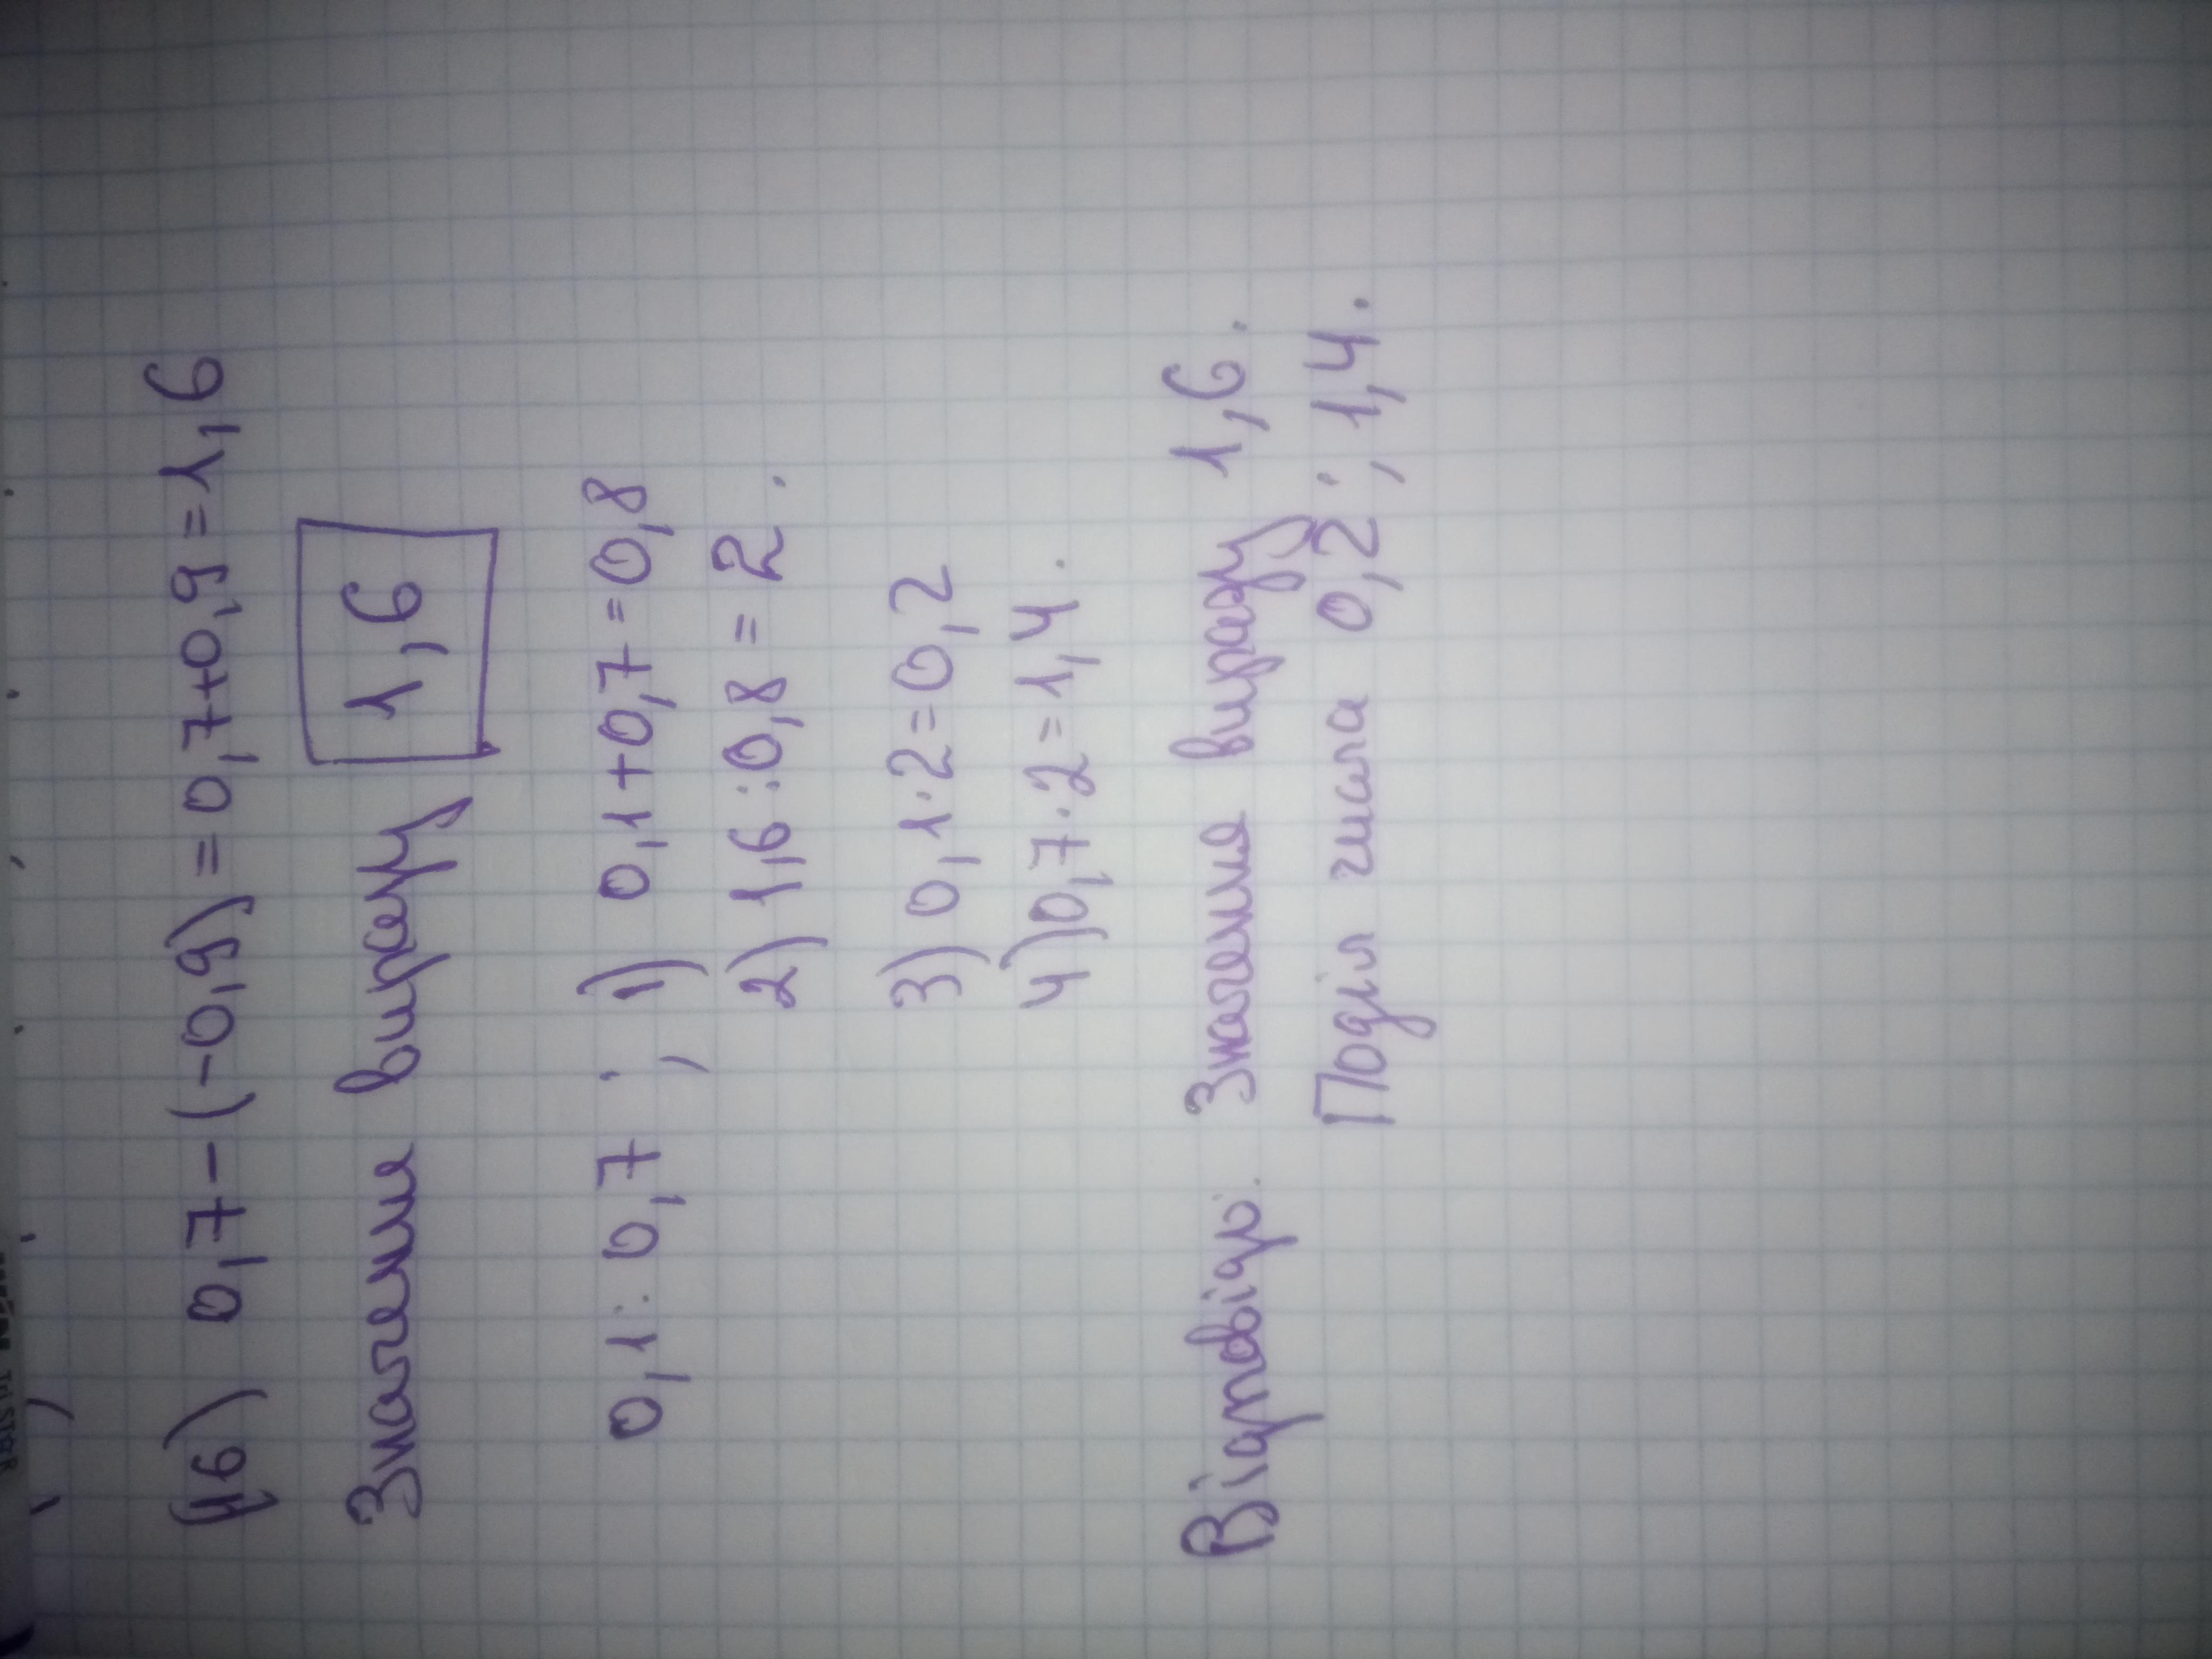 16) 0,7-(-0,9) = 0,7+0,9 = 1,6
Значення виразу 1,6
0,1 : 0,7 ; 1) 0,1+0,7=0,8
2) 1,6 : 0,8 = 2.
3) 0,1·2=0,2
4) 0,7·2=1,4.
Відповідь. Значення виразу 1,6.
Поділ числа 0,2 ; 1,4.